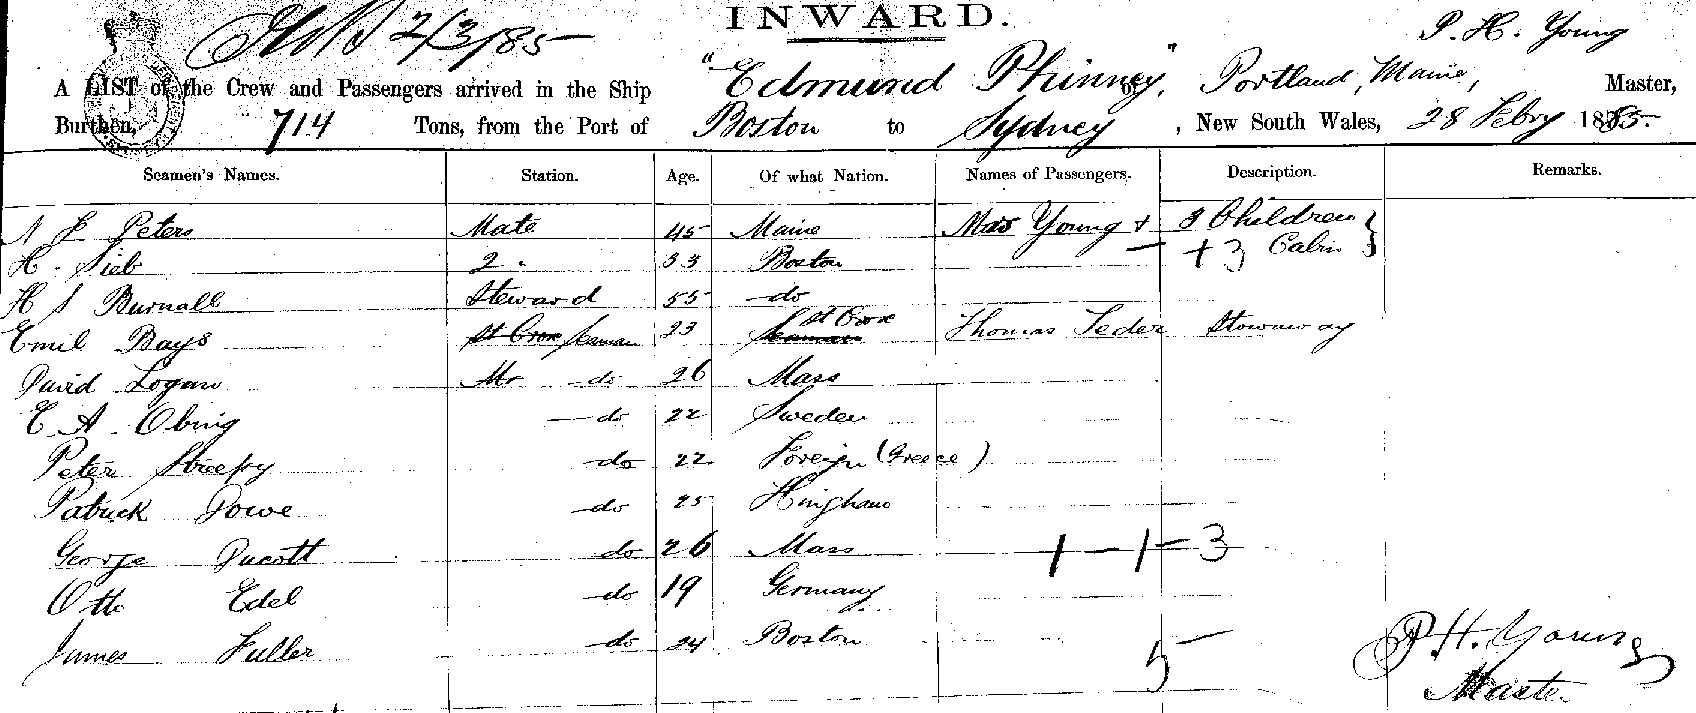 INWARD.
2/3/85
P. H. Young
A LIST of the Crew and Passengers arrived in the Ship "Edmund Phinney", of Portland, Maine, Master,
Burthen, 714 Tons, from the Port of Boston to Sydney, New South Wales, 28 Febry 1885.
Seamen's Names. Station. Age. Of what Nation. Names of Passengers. Description. Remarks.
Peters Mate 45 Maine Mrs Young + 3 Children
H. Sieb 2 " 33 Boston + 3 Cabin }
H S Burnall Steward 55 do
Emil Bays St Croix Seaman 23 Seaman St Croix Thomas Feder Stowaway
David Logan do 26 Mass
E. A. Obing do 22 Sweden
Peter do 22 Foreign (Greece)
Patrick Dowe do 25 Hingham
George Ducott do 26 Mass 1 - 1 - 3
Otto Edel do 19 Germany
James Fuller do 24 Boston
5
P. H. Young
Master